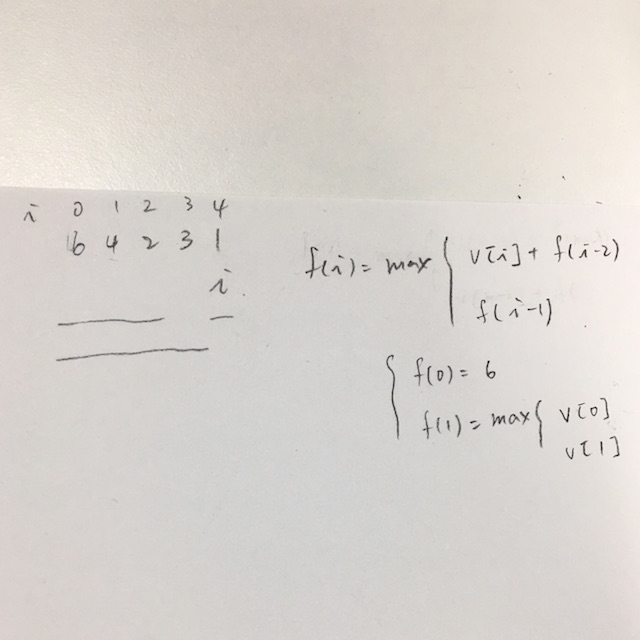 i 0 1 2 3 4
6 4 2 3 1
i
f(i) = max { v[i] + f(i-2)
f(i-1)
{ f(0) = 6
f(1) = max { v[0]
v[1]